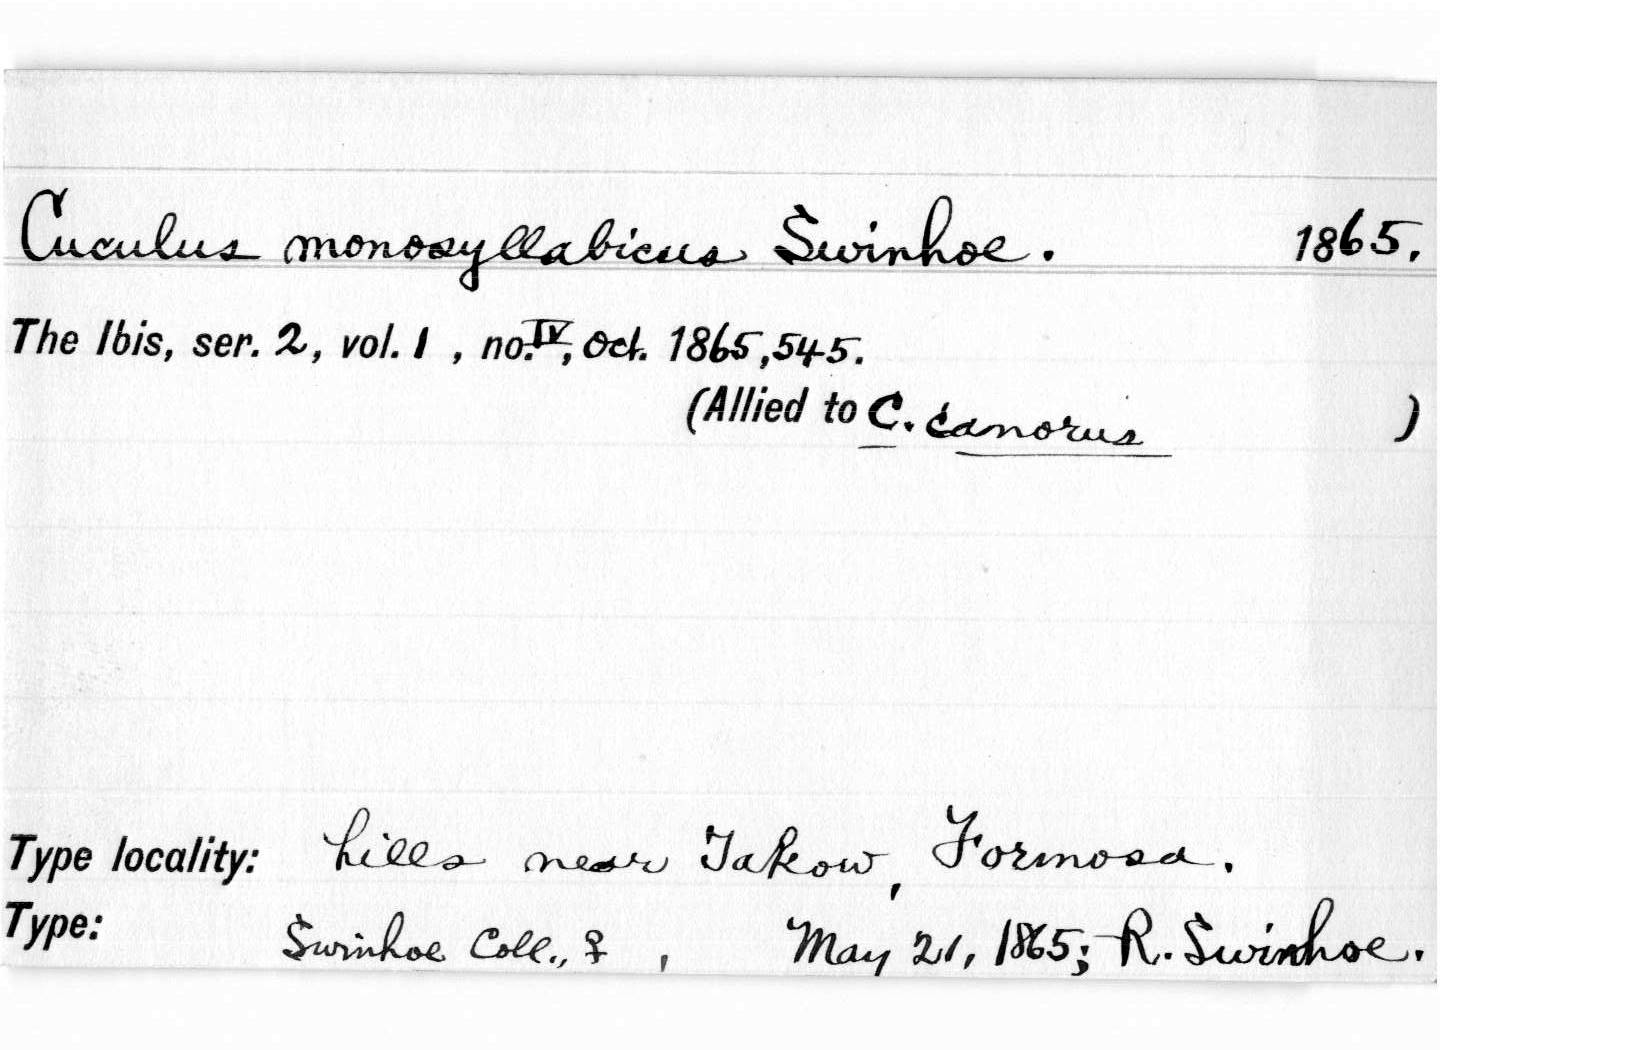 Cuculus monosyllabicus Swinhoe. 1865.
The Ibis, ser. 2, vol. 1, no. IV, Oct. 1865, 545.
(Allied to C. canorus )
Type locality: hills near Takow, Formosa.
Type: Swinhoe Coll., ♀, May 21, 1865; R. Swinhoe.